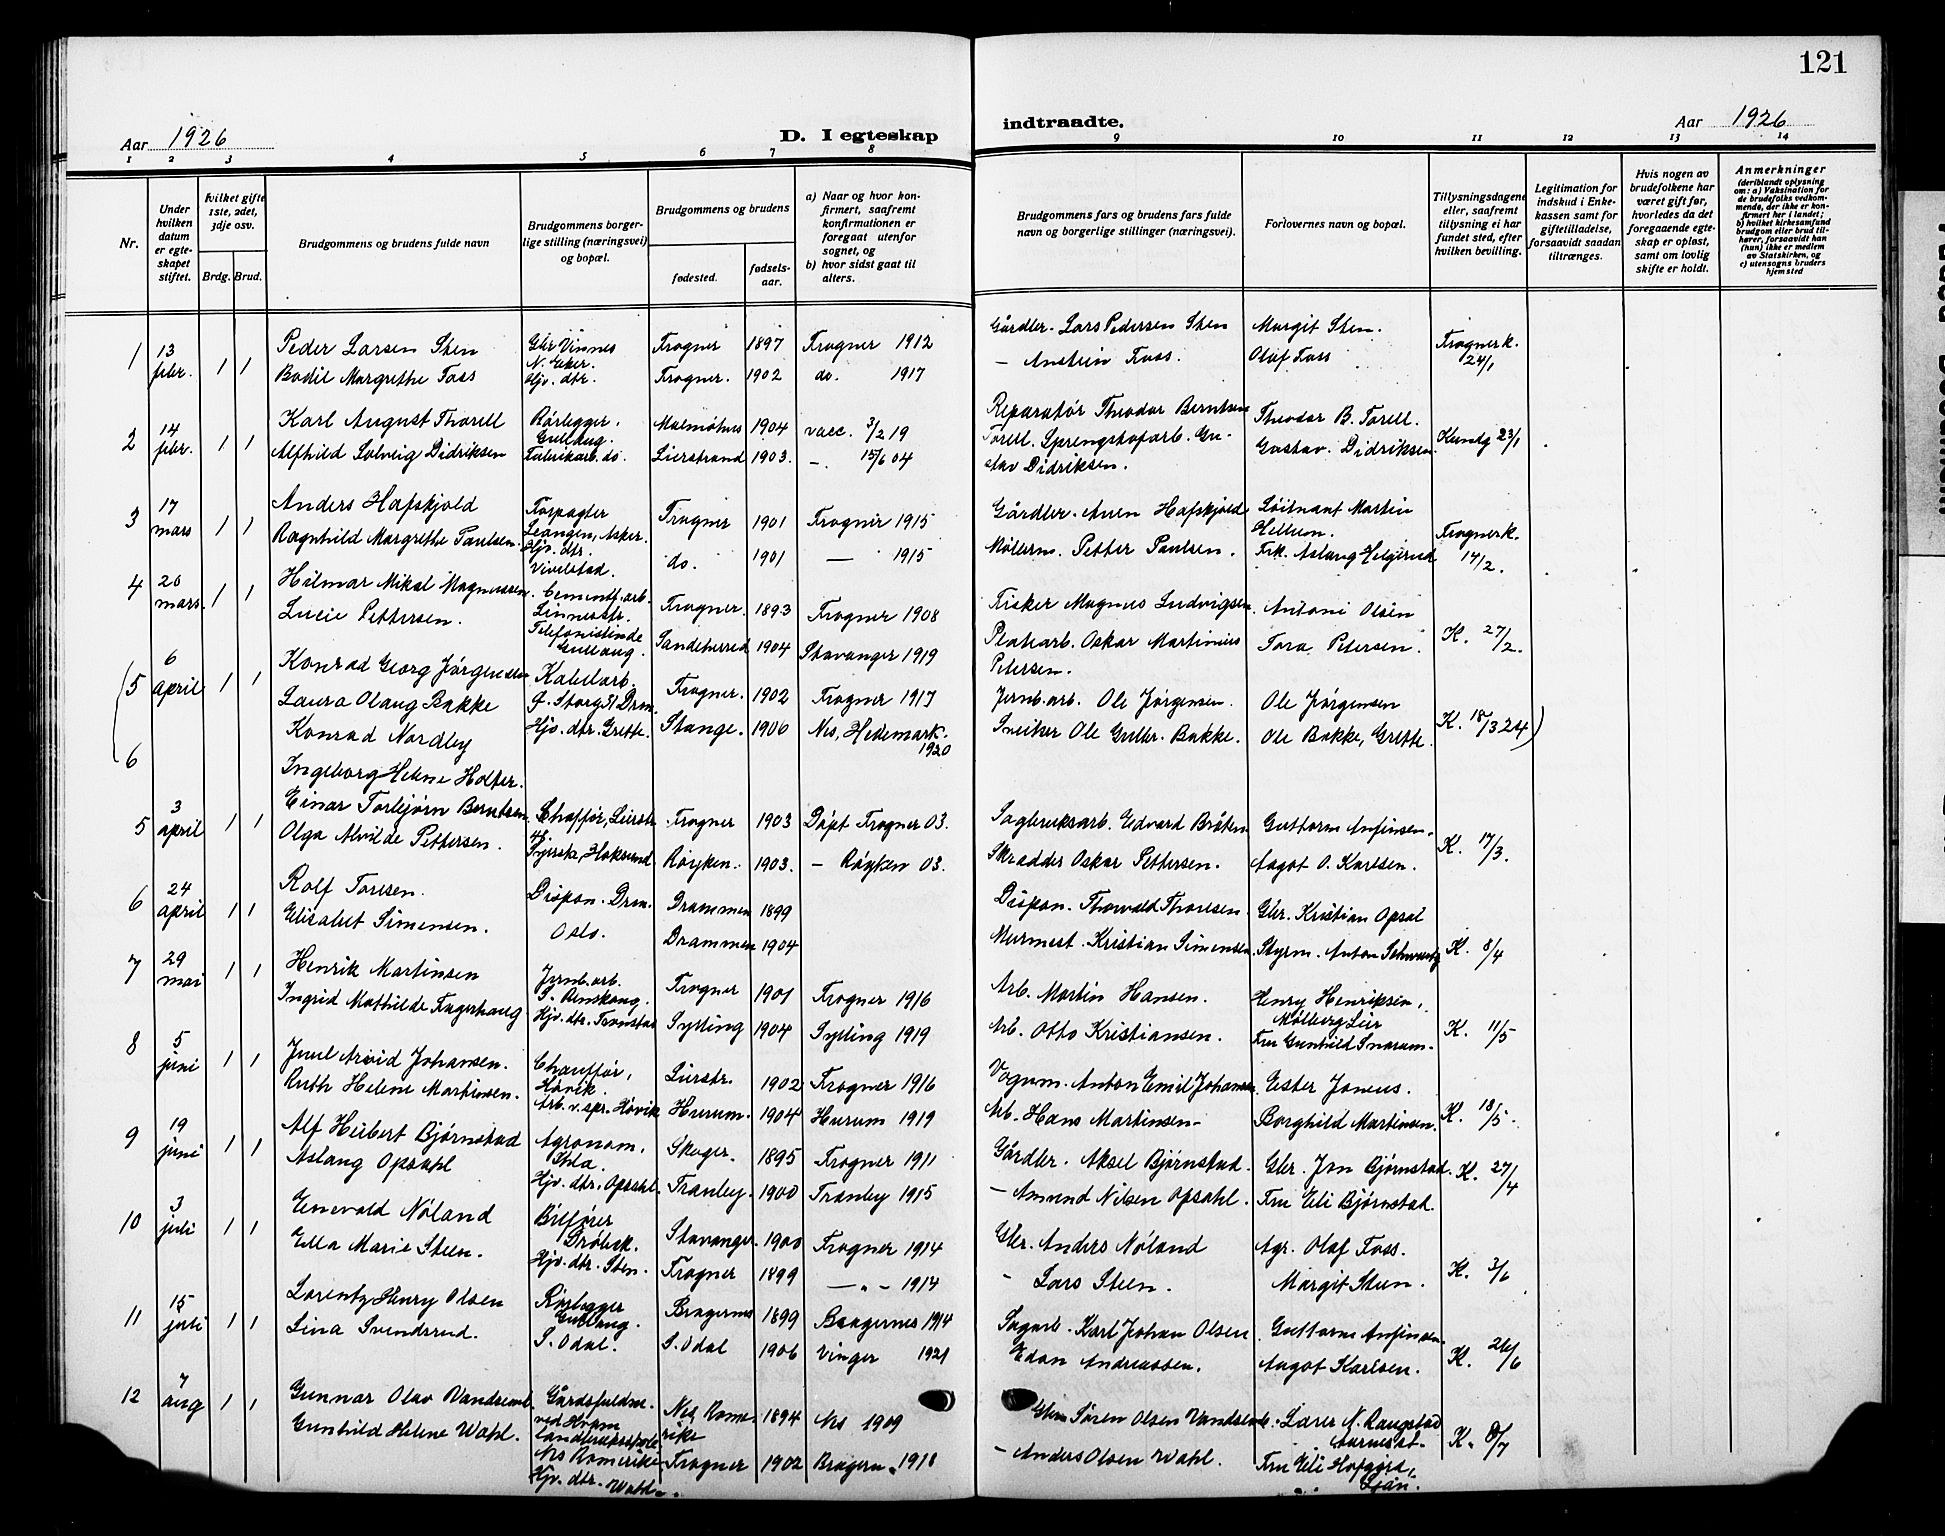 121
Aar 1926
D. I egteskap
indtraadte.
Aar 1926
1 2 3 4 5 6 7 8 9 10 11 12 13 14
Nr.
Under hvilken datum er egteskapet stiftet.
hvilket gifte 1ste, 2det, 3dje osv.
Brdg. Brud.
Brudgommens og brudens fulde navn
Brudgommens borgerlige stilling (næringsvei) og bopæl.
Brudgommens og brudens
fødested.
fødselsaar.
a) Naar og hvor konfirmert, saafremt konfirmationen er foregaat utenfor sognet, og
b) hvor sidst gaat til alters.
Brudgommens fars og brudens fars fulde navn og borgerlige stillinger (næringsvei).
Forlovernes navn og bopæl.
Tillysningsdagene eller, saafremt tillysning ei har fundet sted, efter hvilken bevilling.
Legitimation for indskud i Enkekassen samt for giftetilladelse, forsaavidt saadan tiltrænges.
Hvis nogen av brudefolkene har været gift før, hvorledes da det foregaaende egteskap er opløst, samt om lovlig skifte er holdt.
Anmerkninger
(deriblandt oplysning om: a) Vaksination for de brudefolks vedkommende, der ikke er konfirmert her i landet; b) hvilket kirkesamfund brudgom eller brud tilhører, forsaavidt han (hun) ikke er medlem av Statskirken, og c) utensogns bruders hjemsted
1 13 febr. 1 1 Peder Larsen Sten Gbr Vinnes N. Eker. Frogner 1897 Frogner 1912 Gårdbr. Lars Pedersen Sten Margit Sten. Frogner k. 24/1
Bodil Margrethe Foss Hjv. dtr. Frogner. 1902 do. 1917 — Anstein Foss. Olaf Foss
2 14 febr. 1 1 Karl August Thorell Rørlegger. Gullaug. Malmøhus 1904 vacc. 3/2 19 Reparatør Theodor Berntsen Torell. Theodor B. Torell. Kundg 23/1
Alfhild Solveig Didriksen Fabrikarb. do. Lierstrand 1903. —. 15/6 04 Sprengstofarb. Gustav Didriksen. Gustav. Didriksen.
3 17 mars 1 1 Anders Hafskjold Forpagter Leangen, Asker. Frogner 1901 Frogner 1915 Gårdbr. Aven Hafskjold Løitnant Martin Hellum. Frogner k. 14/2.
Ragnhild Margrethe Paulsen. Hjv. dtr. Vivelstad. do. 1901 — 1915 Møllerm. Petter Paulsen. Frk. Aslaug Helgerud
4 20 mars. 1 1 Hilmar Mikal Magnussen. Cementf. arb. Linnesstr. Frogner. 1893 Frogner 1908 Fisker Magnus Ludvigsen. Antoni Olsen K. 27/2.
Lucie Pettersen. Telefonistinde Gullaug. Sandeherred 1904 Stavanger 1919 Platearb. Oskar Martinius Petersen. Tora Petersen.
(5 6 april 1 1 Konrad Georg Jørgensen Kabelarb. G. Storg 31 Drm. Frogner. 1902 Frogner 1917 Jernb. arb. Ole Jørgensen. Ole Jørgensen K. 18/3 24)
Laura Olaug Bakke Hjv. dtr. Grette. Stange. 1906 Nes, Hedemark. 1920 Sneiker Ole Gulbr. Bakke. Ole Bakke, Grette.
6 Konrad Nordby
Ingeborg Helene Holter.
5 3 april 1 1 Einar Torbjørn Berntsen Chaffør, Lierstr. Frogner 1903 Døpt Frogner 03. Sagbruksarb. Edvard Bråten Guttorm Anfinsen. K. 17/3.
Olga Alvilde Pettersen. Syerske, Hoksund Røyken. 1903. — Røyken 03. Skrædder Oskar Pettersen. Aagot O. Karlsen.
6 24 april 1 1 Rolf Toresen. Dispon. Drm. Drammen 1899 Dispon. Thorvald Thoresen. Gbr. Kristian Opsal K. 8/4
Elisabet Simensen. Oslo. Drammen 1904 Murmest. Kristian Simensen. Styrm. Anton Schwartz
7 29 mai 1 1 Henrik Martinsen Jernb. arb. Frogner 1901 Frogner 1916 Arb. Martin Hansen. Henry Henriksen, Mølberg Lier K. 11/5
Ingrid Mathilde Fagerhaug Hjv. dtr. Tronstad Sylling 1904 Sylling 1919 Arb. Otto Kristiansen. Fru Gunhild Snarum.
8 5 juni 1 1 Juul Arvid Johansen. Chauffør, Høvik. Lierstr. 1902 Frogner 1916 Vognm. Anton Emil Johansen Ester Joneus. K. 18/5.
Ruth Helene Martinsen. Arb. v. spr. Høvik Hurum. 1904 Hurum 1919 Arb. Hans Martinsen. Borghild Martinsen.
9 19 juni 1 1 Alf Heibert Bjørnstad Agronom, Skoger. 1895 Frogner 1911 Gårdbr. Aksel Bjørnstad. Gbr. Jon Bjørnstad. K. 27/4
Aslaug Opsahl Hjv. dtr. Opsahl. Tranby. 1900 Tranby 1915 — Amund Nilsen Opsahl. Fru Eli Bjørnstad.
10 3 juli 1 1 Enevald Nøland Bilfører Drøbak. Stavanger 1900 Frogner 1914 Gbr. Anders Nøland Agr. Olaf Foss. K. 3/6
Ella Marie Steen. Hjv. dtr. Sten. Frogner 1899 — " — 1914 - Lars Steen. Margit Steen.
11 15 juli 1 1 Lorentz Henry Olsen Rørlegger Gullaug. Bragernes 1899 Bragernes 1914 Sagarb. Karl Johan Olsen Guttorm Anfinsen. K. 26/6
Lina Svendsrud. S. Odal. S. Odal 1906 Vinger 1921 Edon Andreassen. Aagot Karlsen.
12 7 aug 1 1 Gunnar Olav Vandsemb. Gårdsfuldm. ved Hvam landbruksskole Nes Romerike Nes Romerike 1894 Nes 1909 Gbr. Søren Olsen Vandsemb. Lærer N. Raugstad Aarnes st. K. 8/7
Gunhild Helene Wahl. Hjv. dtr. Wahl. Frogner 1902 Bragern. 1918 — Anders Olsen Wahl. Fru Eli Hofgård, Ljan.